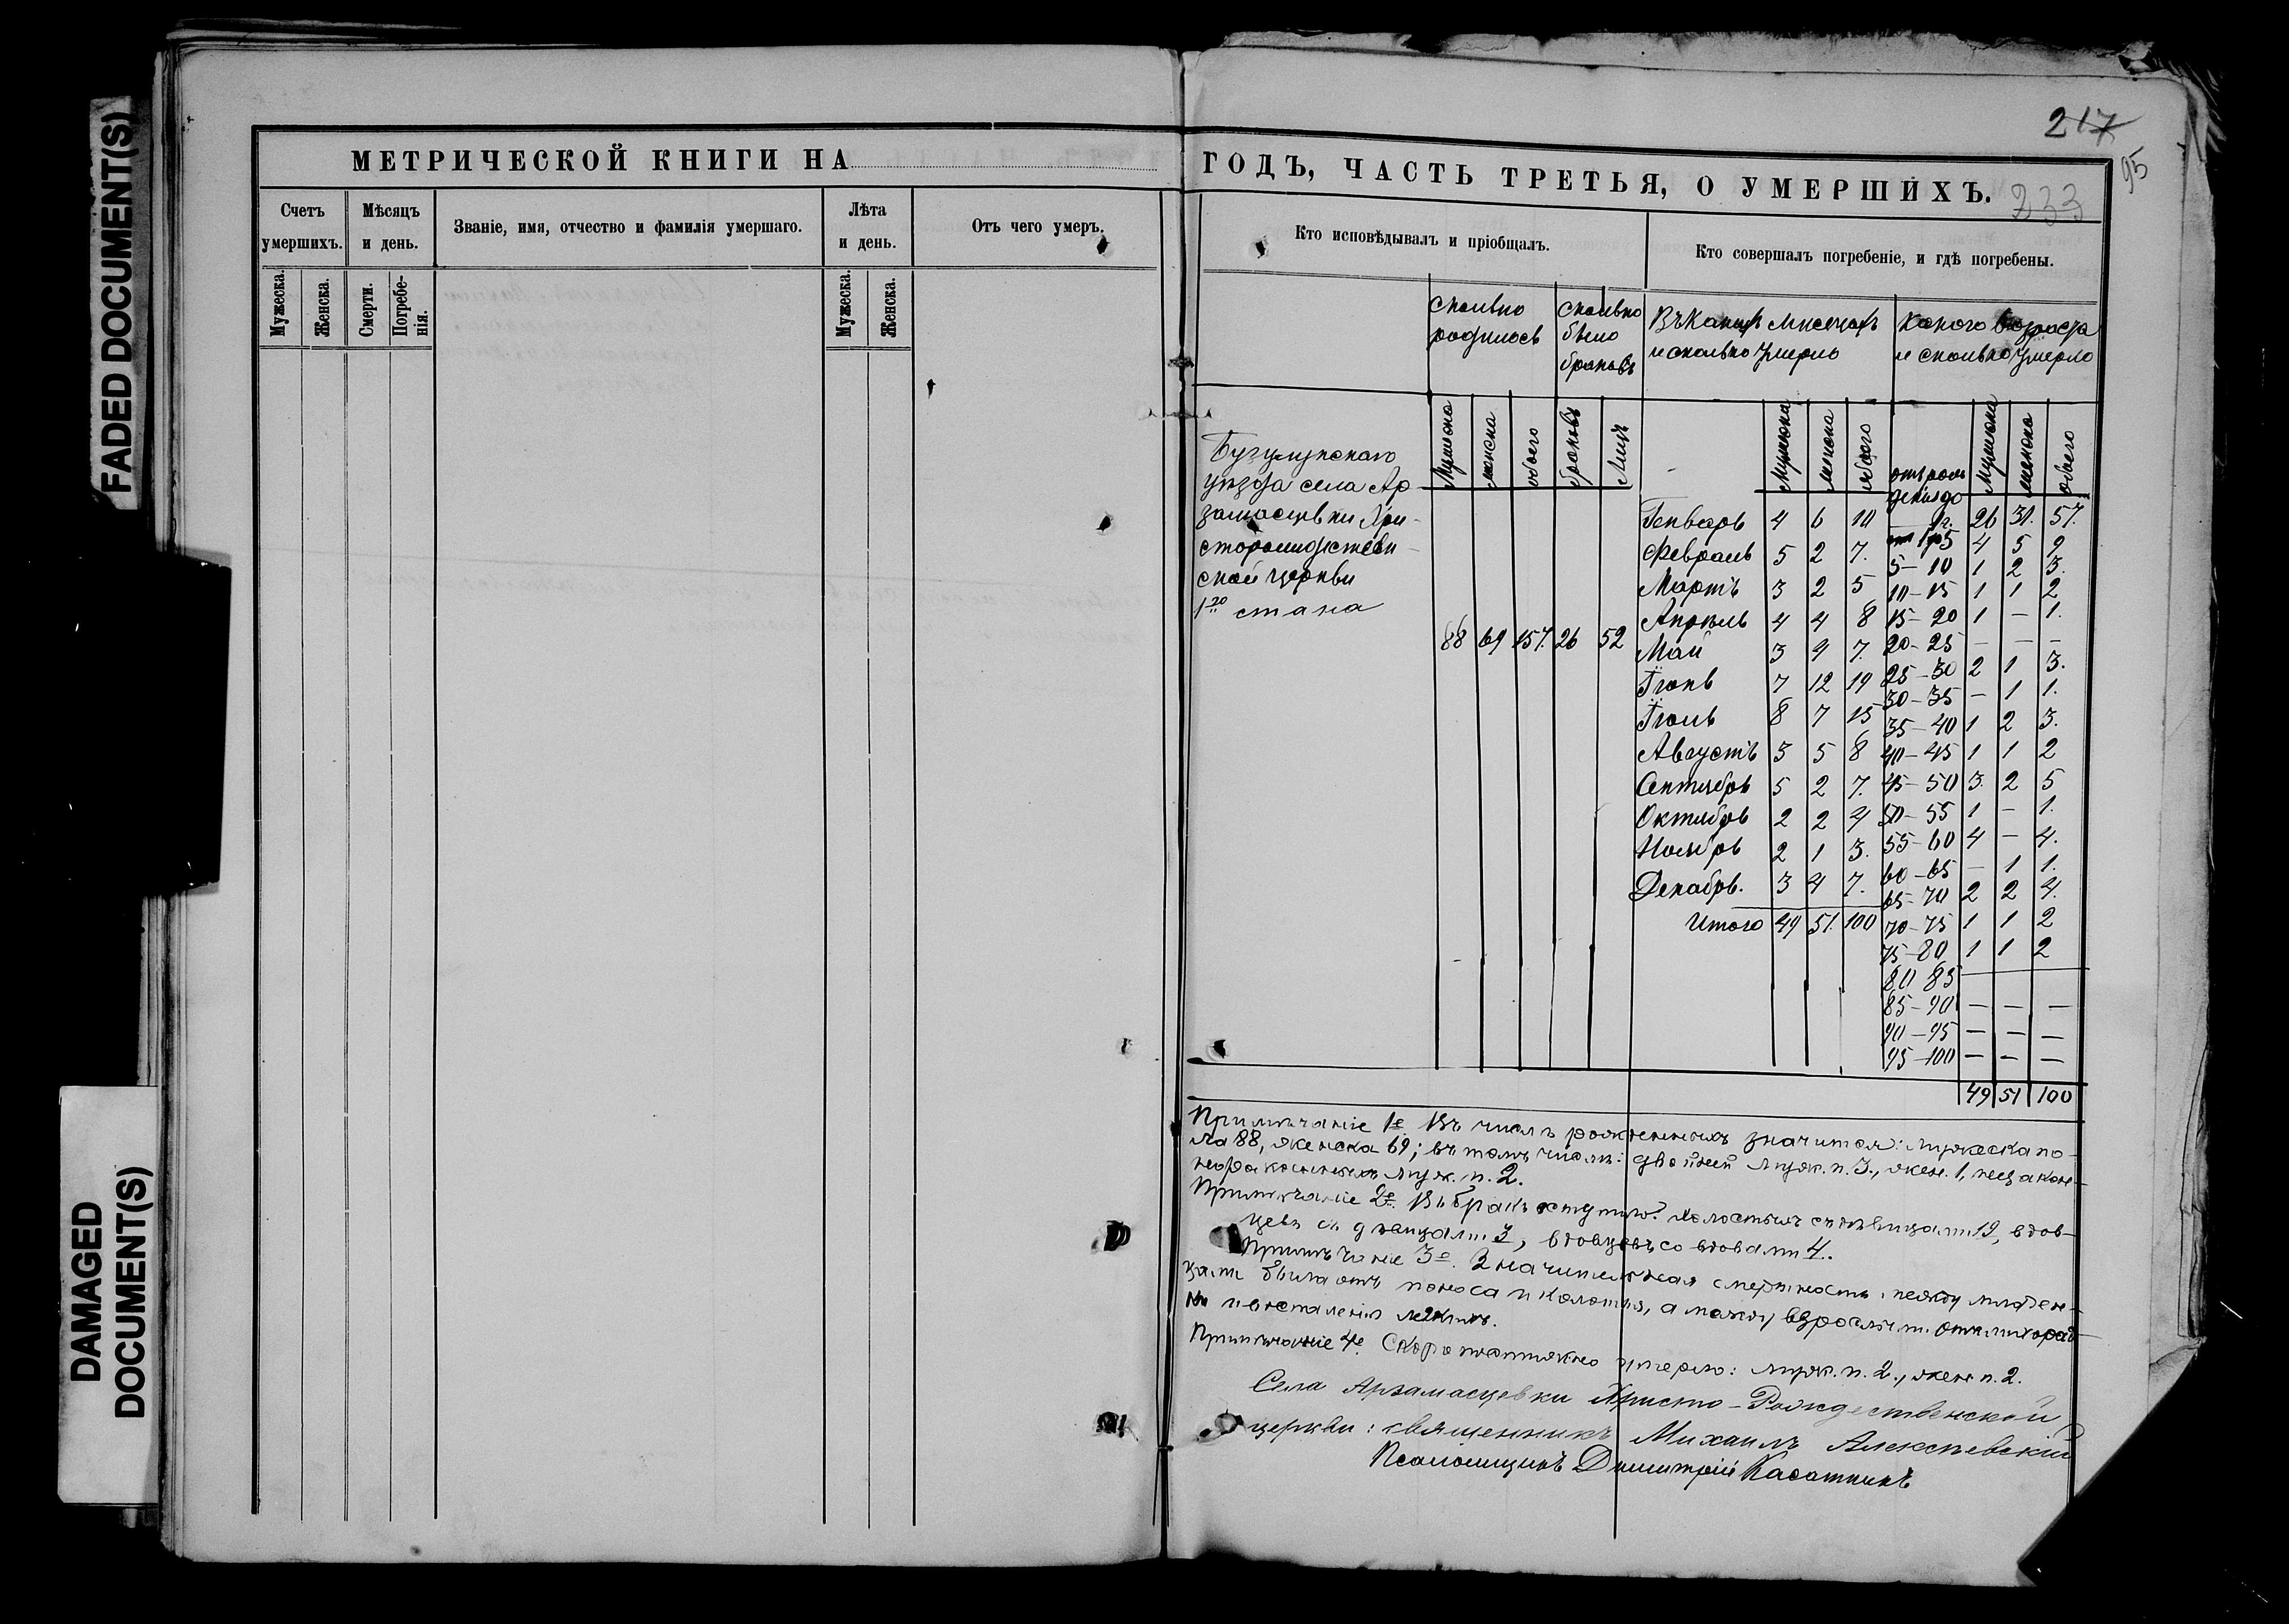 FADED DOCUMENT(S)
DAMAGED
DOCUMENT(S)
217
95
233
МЕТРИЧЕСКОЙ КНИГИ НА
ГОДЪ, ЧАСТЬ ТРЕТЬЯ, О УМЕРШИХЪ.
Счетъ умершихъ.
Мѣсяцъ и день.
Званіе, имя, отчество и фамилія умершаго.
Лѣта и день.
Отъ чего умеръ.
Кто исповѣдывалъ и пріобщалъ.
Кто совершалъ погребеніе, и гдѣ погребены.
Мужеска.
Женска.
Смерти.
Погребе-
нія.
Мужеска.
Женска.
сколько родилось
сколько было браковъ
Въ какихъ мисецахъ и сколько умерло
какого возроста и сколько умерло
Мужеска женска обоего браковъ Лицъ
Мужеска женска обоего
отъ рож
денія до
Мужеска женска обоего
Бузулукскаго
уѣзда села Ар-
замасцевки Хри-
сторождествен-
ской церкви
1го стана
88 69 157. 26 52
Генварь 4 6 10
Февраль 5 2 7.
Мартъ 3 2 5
Апрѣль 4 4 8
Май 3 4 7.
Іюнь 7 12 19
Іюль 8 7 15
Августъ 3 5 8
Сентябрь 5 2 7.
Октябрь 2 2 4
Ноябрь 2 1 3.
Декабрь. 3 4 7.
Итого 49 51. 100
— 1г. 26 31. 57.
от 1 до 5 4 5 9
5 – 10 1 2 3.
10 – 15 1 1 2
15 – 20 1 – 1.
20 – 25 – – –
25 – 30 2 1 3.
30 – 35 – 1 1.
35 – 40 1 2 3.
40 – 45 1 1 2
45 – 50 3. 2 5
50 – 55 1 – 1.
55 – 60 4 – 4.
60 – 65 – 1 1.
65 – 70 2 2 4.
70 – 75 1 1 2
75 – 80 1 1 2
80 85
85 – 90 – – –
90 – 95 – – –
95 – 100 – – –
49 51 100
Примѣчаніе 1е Въ числѣ рожденныхъ значится: мужеска по-
ла 88, женска 69; въ томъ числѣ: двойней муж. п. 3., жен. 1, незакон-
норожденныхъ муж. п. 2.
Примѣчаніе 2е. Въ бракъ вступило: холостыхъ съ дѣвицами 19, вдов-
цевъ съ дѣвицами 3, вдовцевъ со вдовами 4.
Примѣчаніе 3е. Значительная смертность между младен-
цами была отъ поноса и колотья, а между взрослыми отъ лихорад-
ки и воспаленія легкихъ.
Примѣчаніе 4е. Скоропостижно умерло: муж. п. 2., жен п. 2.
Села Арзамасцевки Христо-Рождественской
церкви: священникъ Михаилъ Алексѣевскій
Псаломщикъ Димитрій Касаткинъ